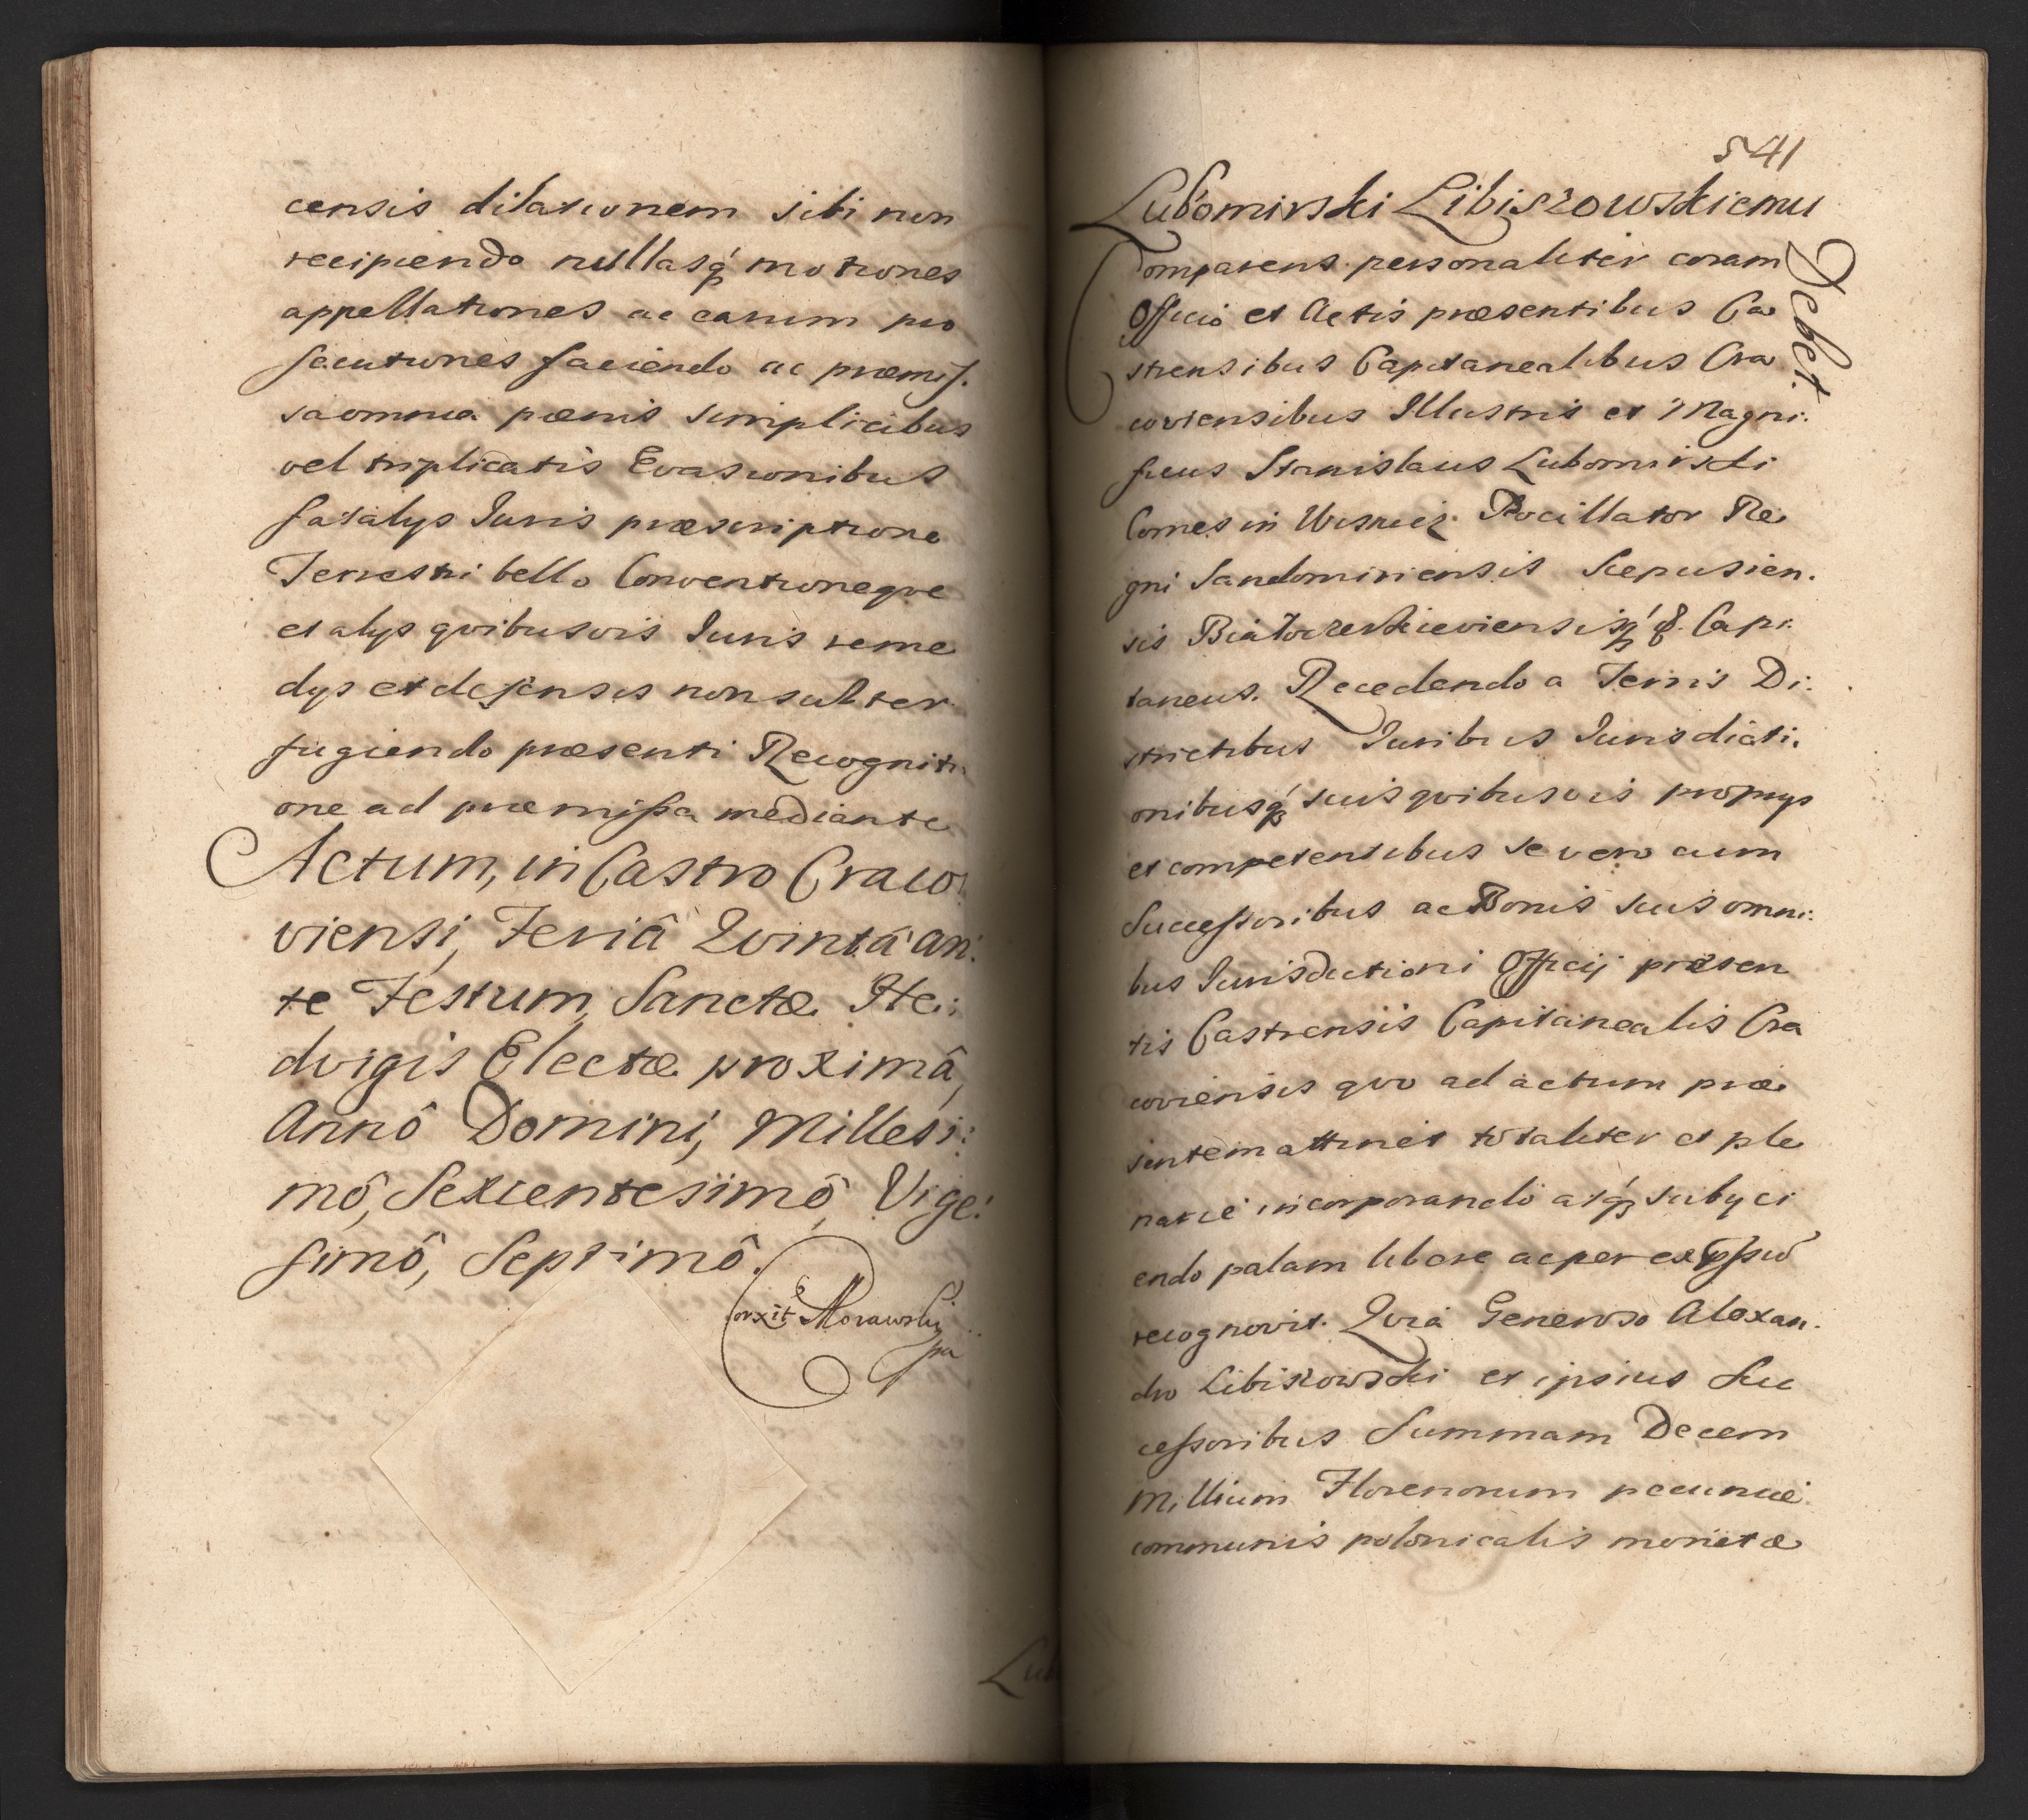 censis dilationem sibi non
recipiendo nullasq́ motiones
appellationes ac earum pro
secutiones faciendo ac præmis.
sa omnia pænis simplicibus
vel triplicatis Evasionibus
fatalys Juris præscriptione
Terrestri bello Conventioneqve
et alys qvibusvis Juris reme
dys et defensis non subter
fugiendo præsenti Recogniti
one ad præmissa mediante
Actum, in Castro Craco
viensi, Feriâ Qvintâ an:
te Festum Sanctæ He:
dvigis Electæ proximâ,
Annô Domini, Millesi:
mô, Sexcentesimô, Vige:
simô, Septimô.
Corxit Morawski
Lub
541
Lubomirski Libiszowskiemu
Debet.
Comparens personaliter coram
Officio et Actis præsentibus Ca
strensibus Capitanealibus Cra
coviensibus Illustris et Magni:
ficus Stanislaus Lubomirski
Comes in Wisnicz Pocillator Re
gni Sandomiriensis Scepusien.
sis Białocerkieviensisq́ &. Capi:
taneus. Recedendo a Terris Di:
strictibus Juribus Jurisdicti.
onibusq́ suis qvibusvis proprys
et competentibus se vero cum
Successoribus ac Bonis suis omni:
bus Jurisdictioni Officij præsen
tis Castrensis Capitanealis Cra
coviensis qvo ad actum præ
sentem attinet totaliter et ple
narie incorporando atq́ subyci
endo palam libere ac per expssũ
recognovit. Qvia Generoso Alexan.
dro Libiszowski et ipsius Suc
cessoribus Summam Decem
Millium Florenorum pecuniæ
communis polonicalis monetæ